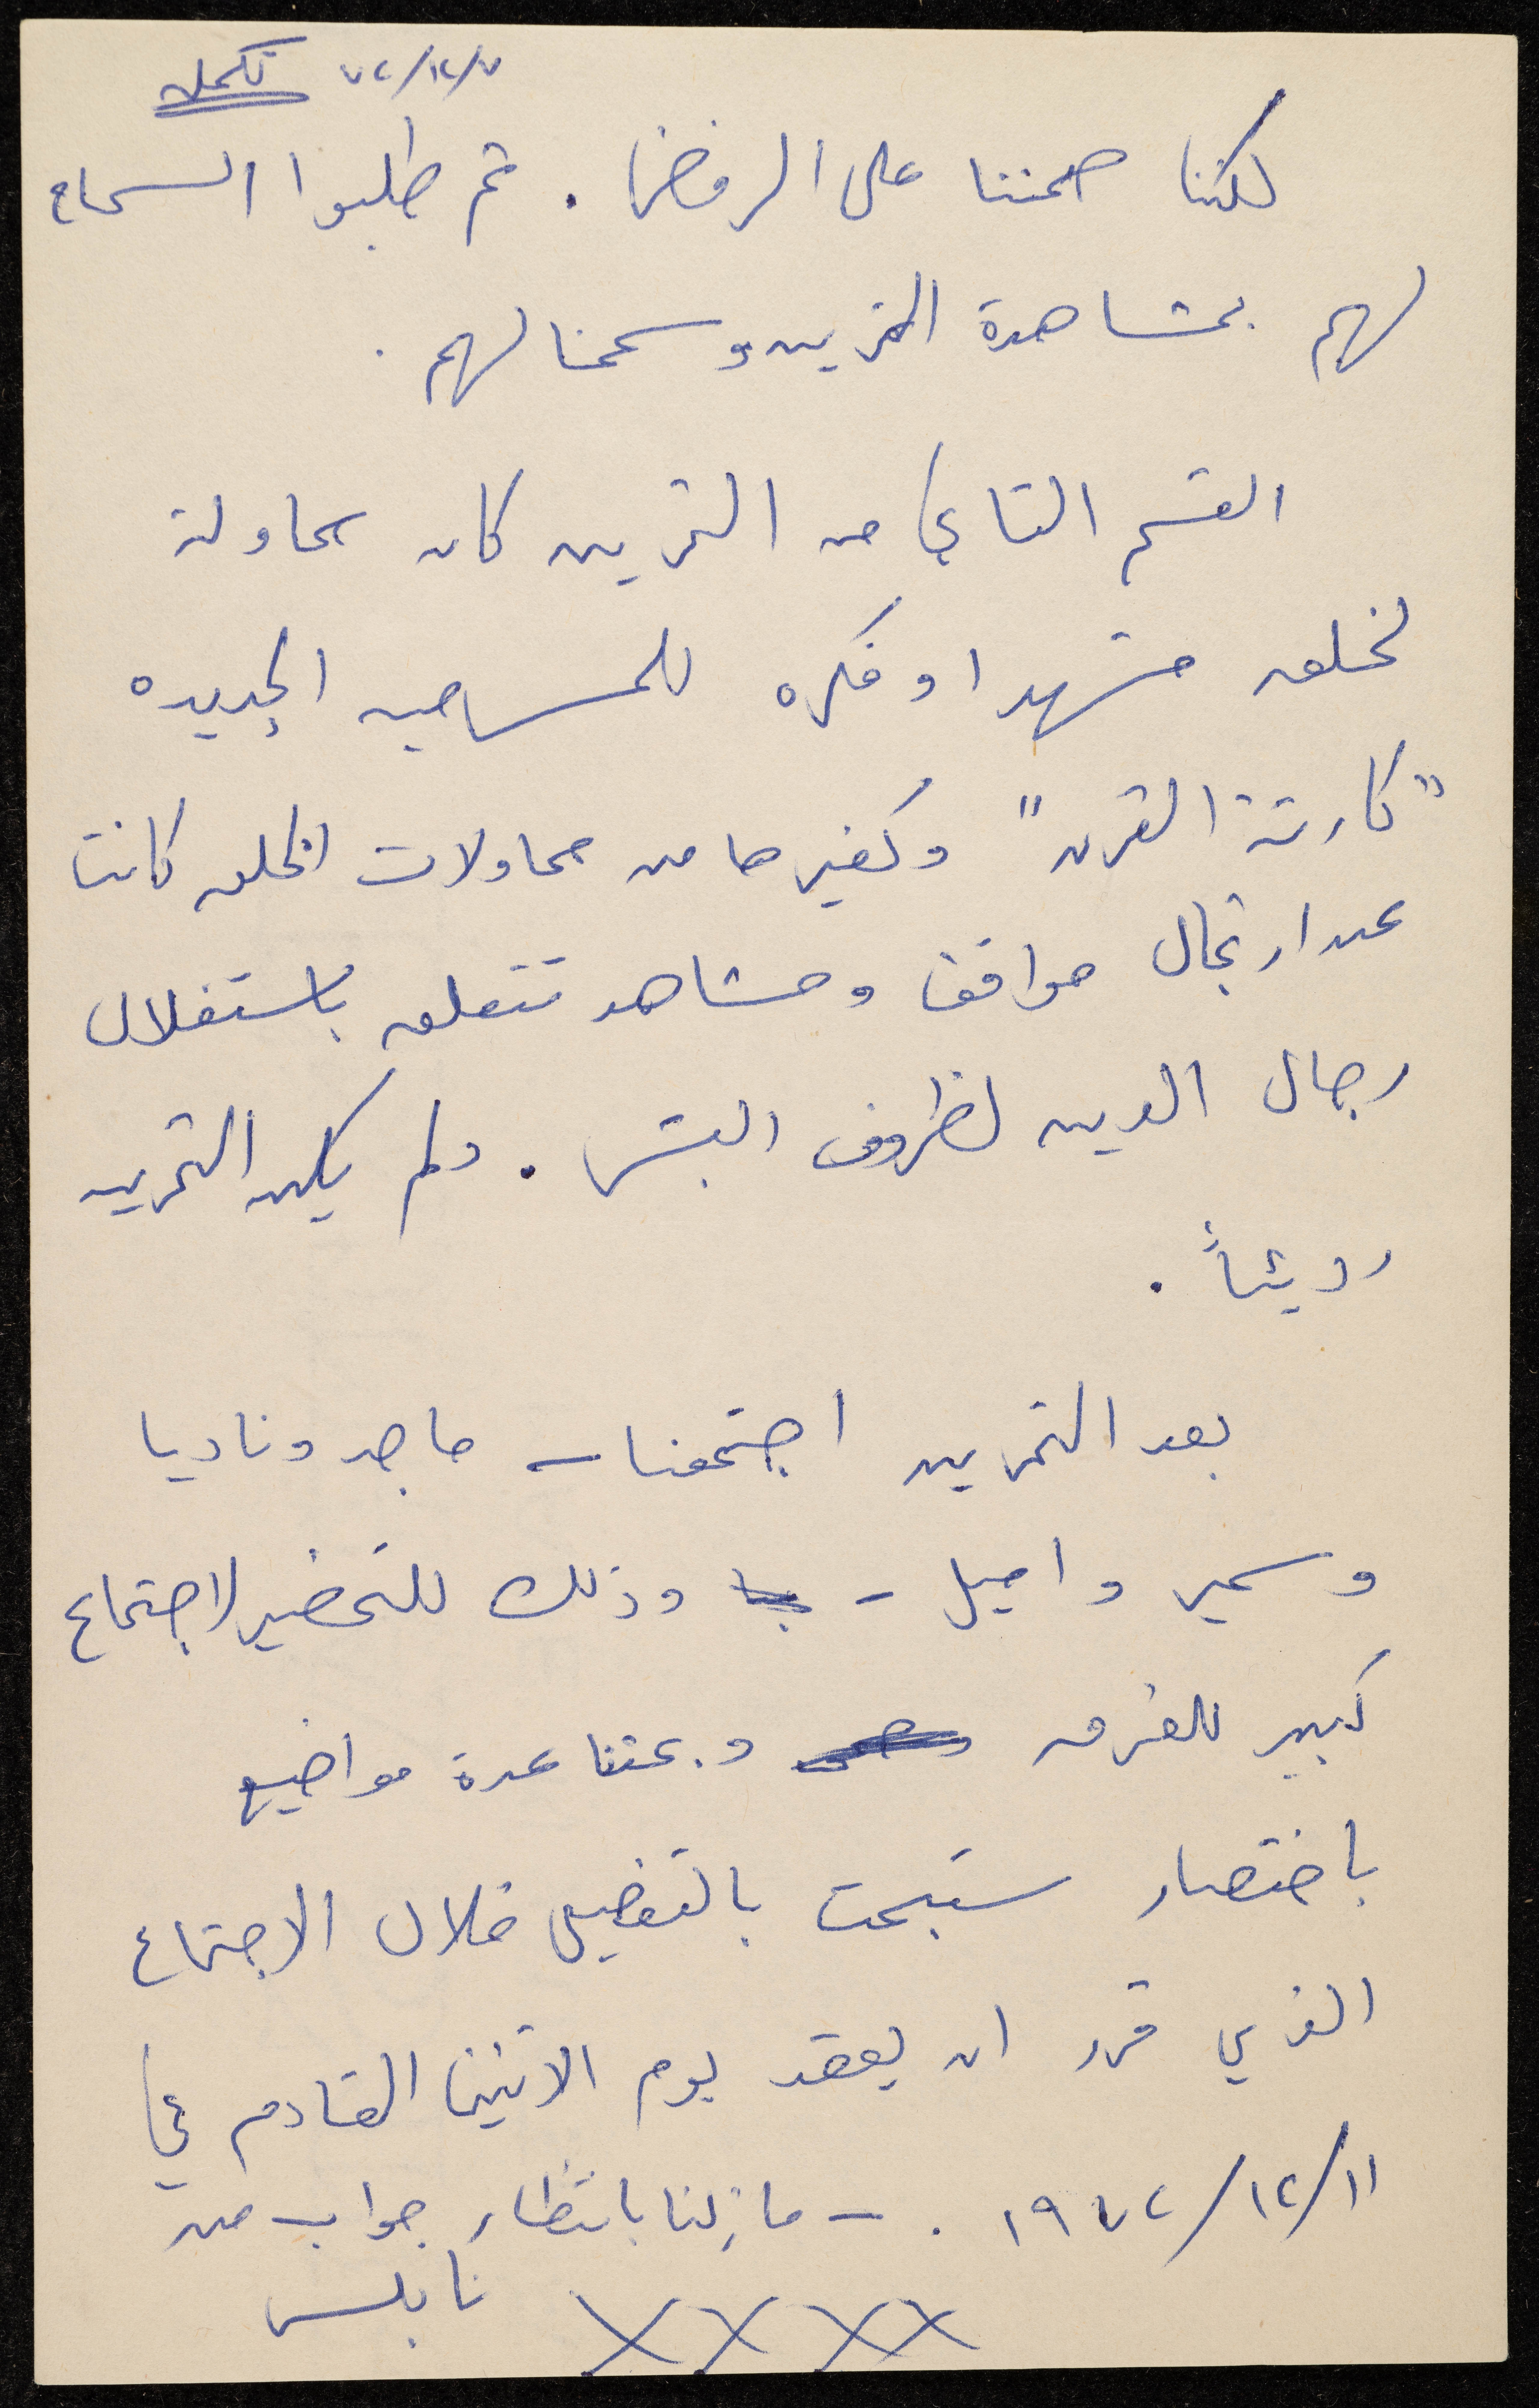 ٧٢/١٢/٧ تكملة
لكننا صممنا على الرفض . ثم طلبوا السماح
لهم بمشاهدة التمرين وسمحنا لهم .
القسم الثاني من التمرين كان محاولة
لخلق مشهد او فكره للمسرحيه الجديده
"كارثة القرن" وكغيرها من محاولات الخلق كانت
عن ارتجال مواقف ومشاهد تتعلق باستغلال
رجال الدين لظروف البشر . ولم يكن التمرين
رديئاً .
بعد التمرين اجتمعنا - ماجد وناديا
وسمير واميل - وذلك للتحضير لاجتماع
كبير للفرقه وبحثنا عدة مواضيع
باختصار ستبحث بالتفصيل خلال الاجتماع
الذي قرر ان يعقد يوم الاثنين القادم في
١١/١٢/١٩٧٢ . - ما زلنا بانتظار جواب من
نابلس
XXXX